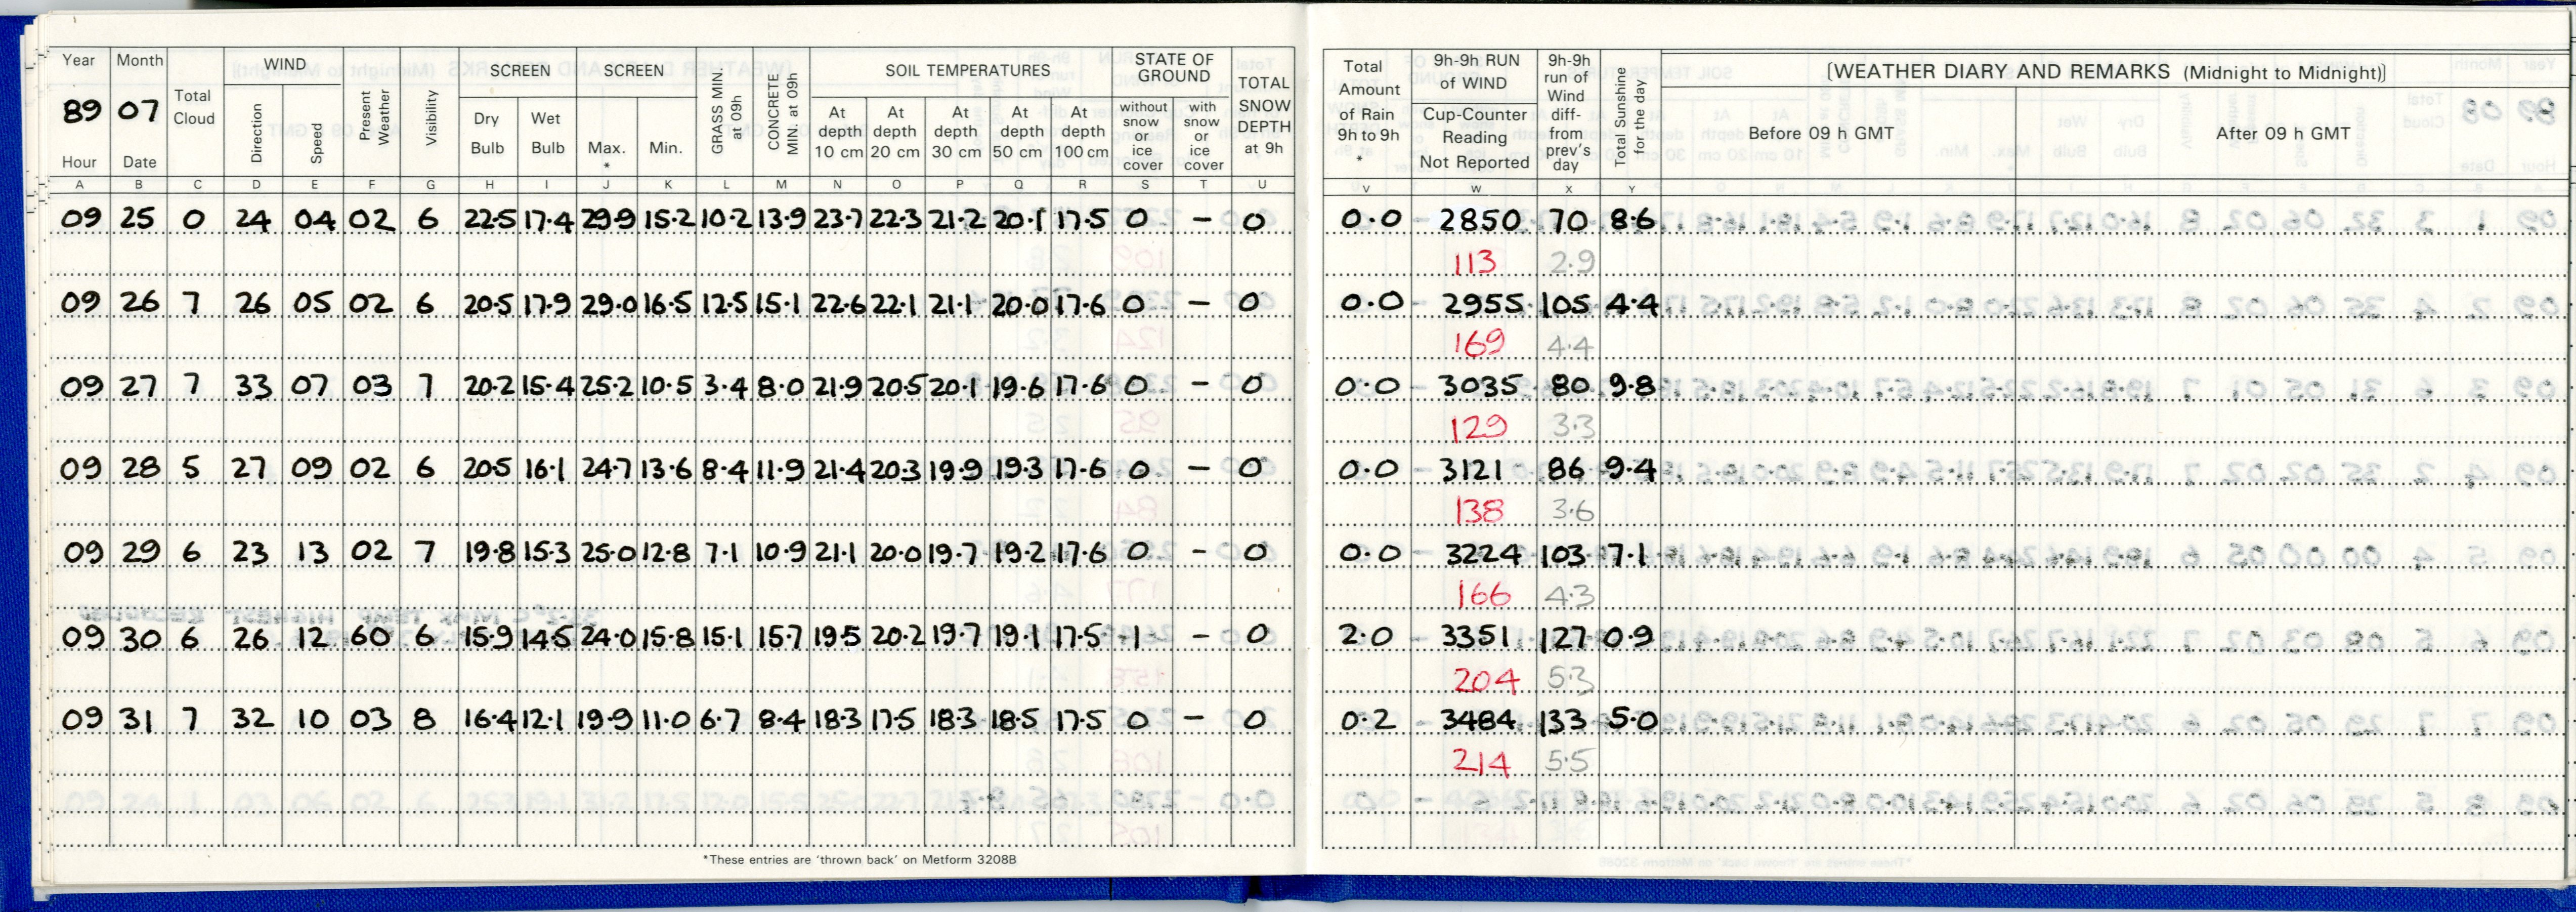 Year Month Total Cloud WIND Present Weather Visibility SCREEN SCREEN GRASS MIN. at 09h CONCRETE MIN. at 09h SOIL TEMPERATURES STATE OF GROUND TOTAL SNOW DEPTH at 9h Total Amount of Rain 9h to 9h * 9h-9h RUN of WIND 9h-9h run of Wind diff- from prev's day Total Sunshine for the day [WEATHER DIARY AND REMARKS (Midnight to Midnight)]
89 07 Direction Speed Dry Bulb Wet Bulb Max. * Min. At depth 10 cm At depth 20 cm At depth 30 cm At depth 50 cm At depth 100 cm without snow or ice cover with snow or ice cover Cup-Counter Reading Not Reported Before 09 h GMT After 09 h GMT
Hour Date
A B C D E F G H I J K L M N O P Q R S T U V W X Y
09 25 0 24 04 02 6 22·5 17·4 29·9 15·2 10·2 13·9 23·7 22·3 21·2 20·1 17·5 0 – 0 0·0 2850 70 8·6
113 2·9
09 26 7 26 05 02 6 20·5 17·9 29·0 16·5 12·5 15·1 22·6 22·1 21·1 20·0 17·6 0 – 0 0·0 2955 105 4·4
169 4·4
09 27 7 33 07 03 7 20·2 15·4 25·2 10·5 3·4 8·0 21·9 20·5 20·1 19·6 17·6 0 – 0 0·0 3035 80 9·8
129 3·3
09 28 5 27 09 02 6 20·5 16·1 24·7 13·6 8·4 11·9 21·4 20·3 19·9 19·3 17·6 0 – 0 0·0 3121 86 9·4
138 3·6
09 29 6 23 13 02 7 19·8 15·3 25·0 12·8 7·1 10·9 21·1 20·0 19·7 19·2 17·6 0 – 0 0·0 3224 103 7·1
166 4·3
09 30 6 26 12 60 6 15·9 14·5 24·0 15·8 15·1 15·7 19·5 20·2 19·7 19·1 17·5 1 – 0 2·0 3351 127 0·9
204 5·3
09 31 7 32 10 03 8 16·4 12·1 19·9 11·0 6·7 8·4 18·3 17·5 18·3 18·5 17·5 0 – 0 0·2 3484 133 5·0
214 5·5
*These entries are 'thrown back' on Metform 3208B